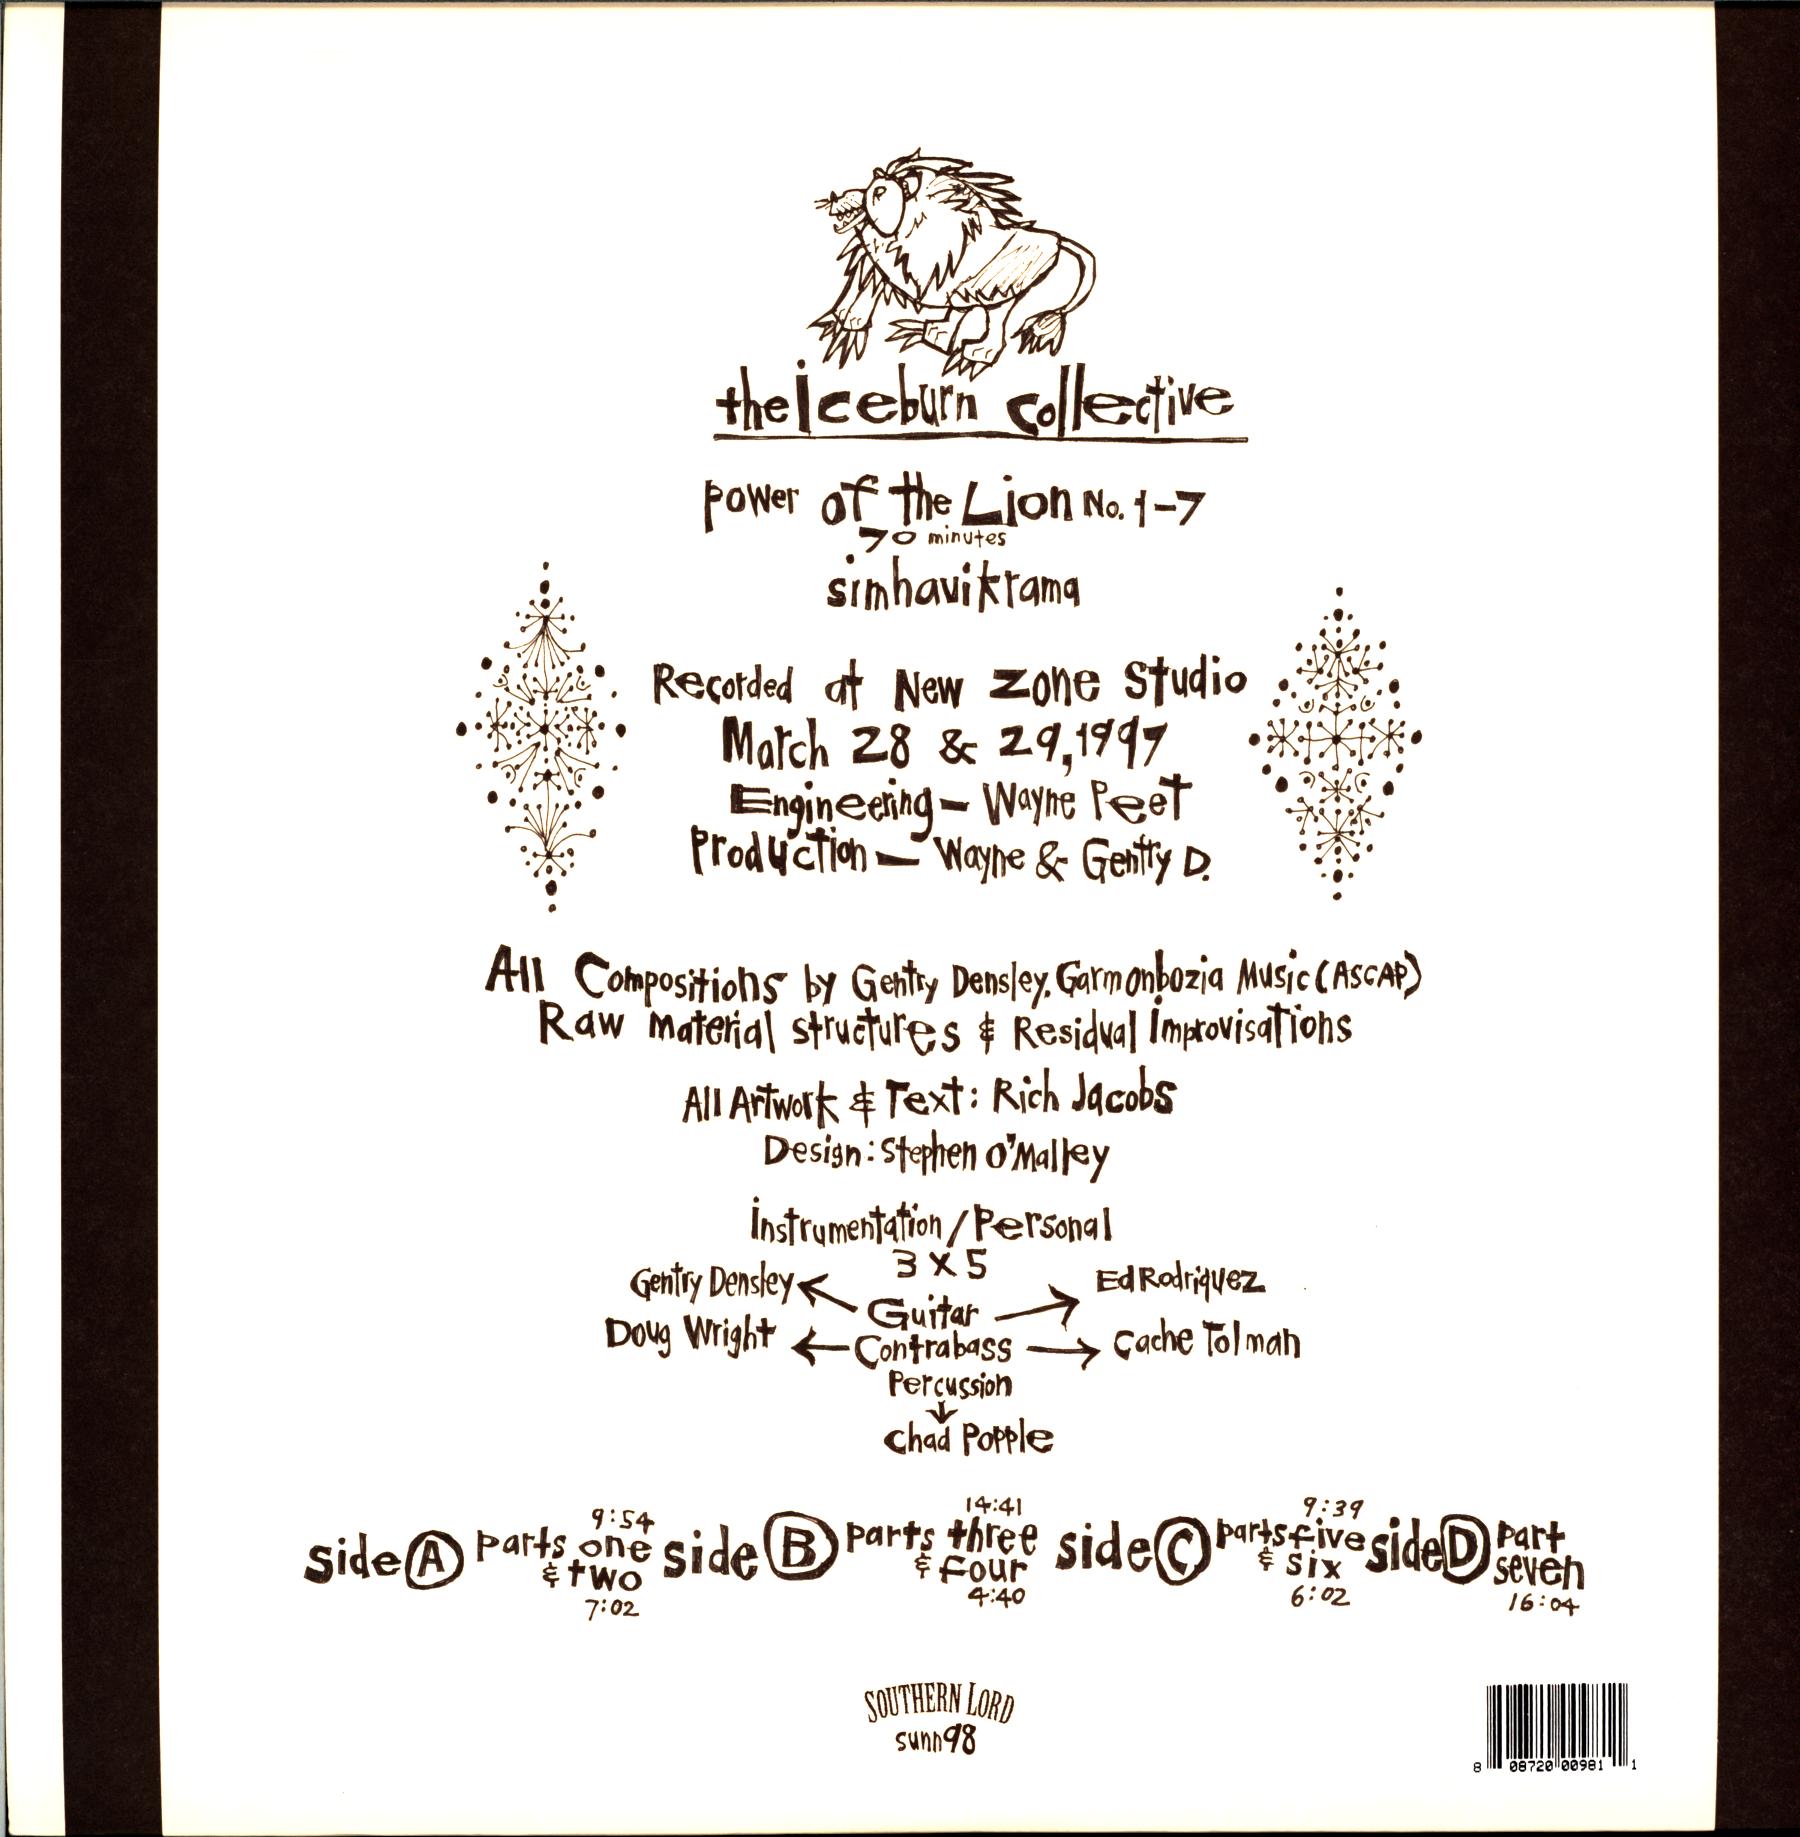 the iceburn collective
power of the Lion No. 1-7
70 minutes
simhavikrama
Recorded at New Zone Studio
March 28 & 29, 1997
Engineering - Wayne Peet
Production - Wayne & Gentry D.
All Compositions by Gentry Densley. Garmonbozia Music (ASCAP)
Raw material structures & Residual Improvisations
All Artwork & Text: Rich Jacobs
Design: Stephen O'Malley
Instrumentation/Personal
3 X 5
Gentry Densley ← Guitar → Ed Rodriquez
Doug Wright ← Contrabass → Cache Tolman
Percussion
↓
Chad Popple
9:54 14:41 9:39
side A parts one side B parts three side C parts five side D part
& two & four & six seven
7:02 4:40 6:02 16:04
SOUTHERN LORD
sunn98
8 08720 00981 1